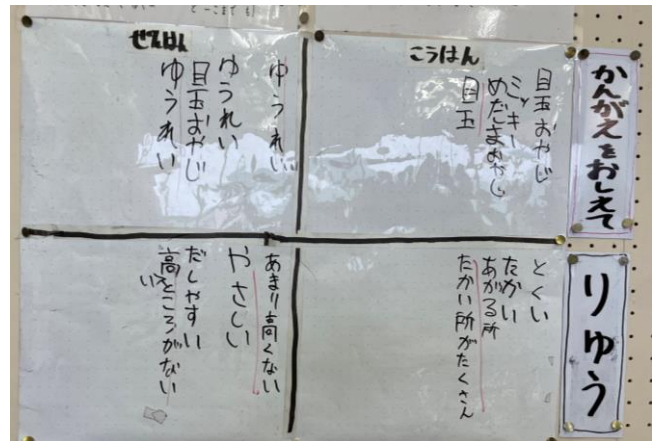 かんがえをおしえて
こうはん
目玉おやじ
ミッキー
めだまおやじ
目玉
ぜんはん
ゆうれい
ゆうれい
目玉おやじ
ゆうれい
りゆう
とくい
たかい
あがる所
たかい所がたくさん
あまり高くない
やさしい
だしやすい
高いところがない